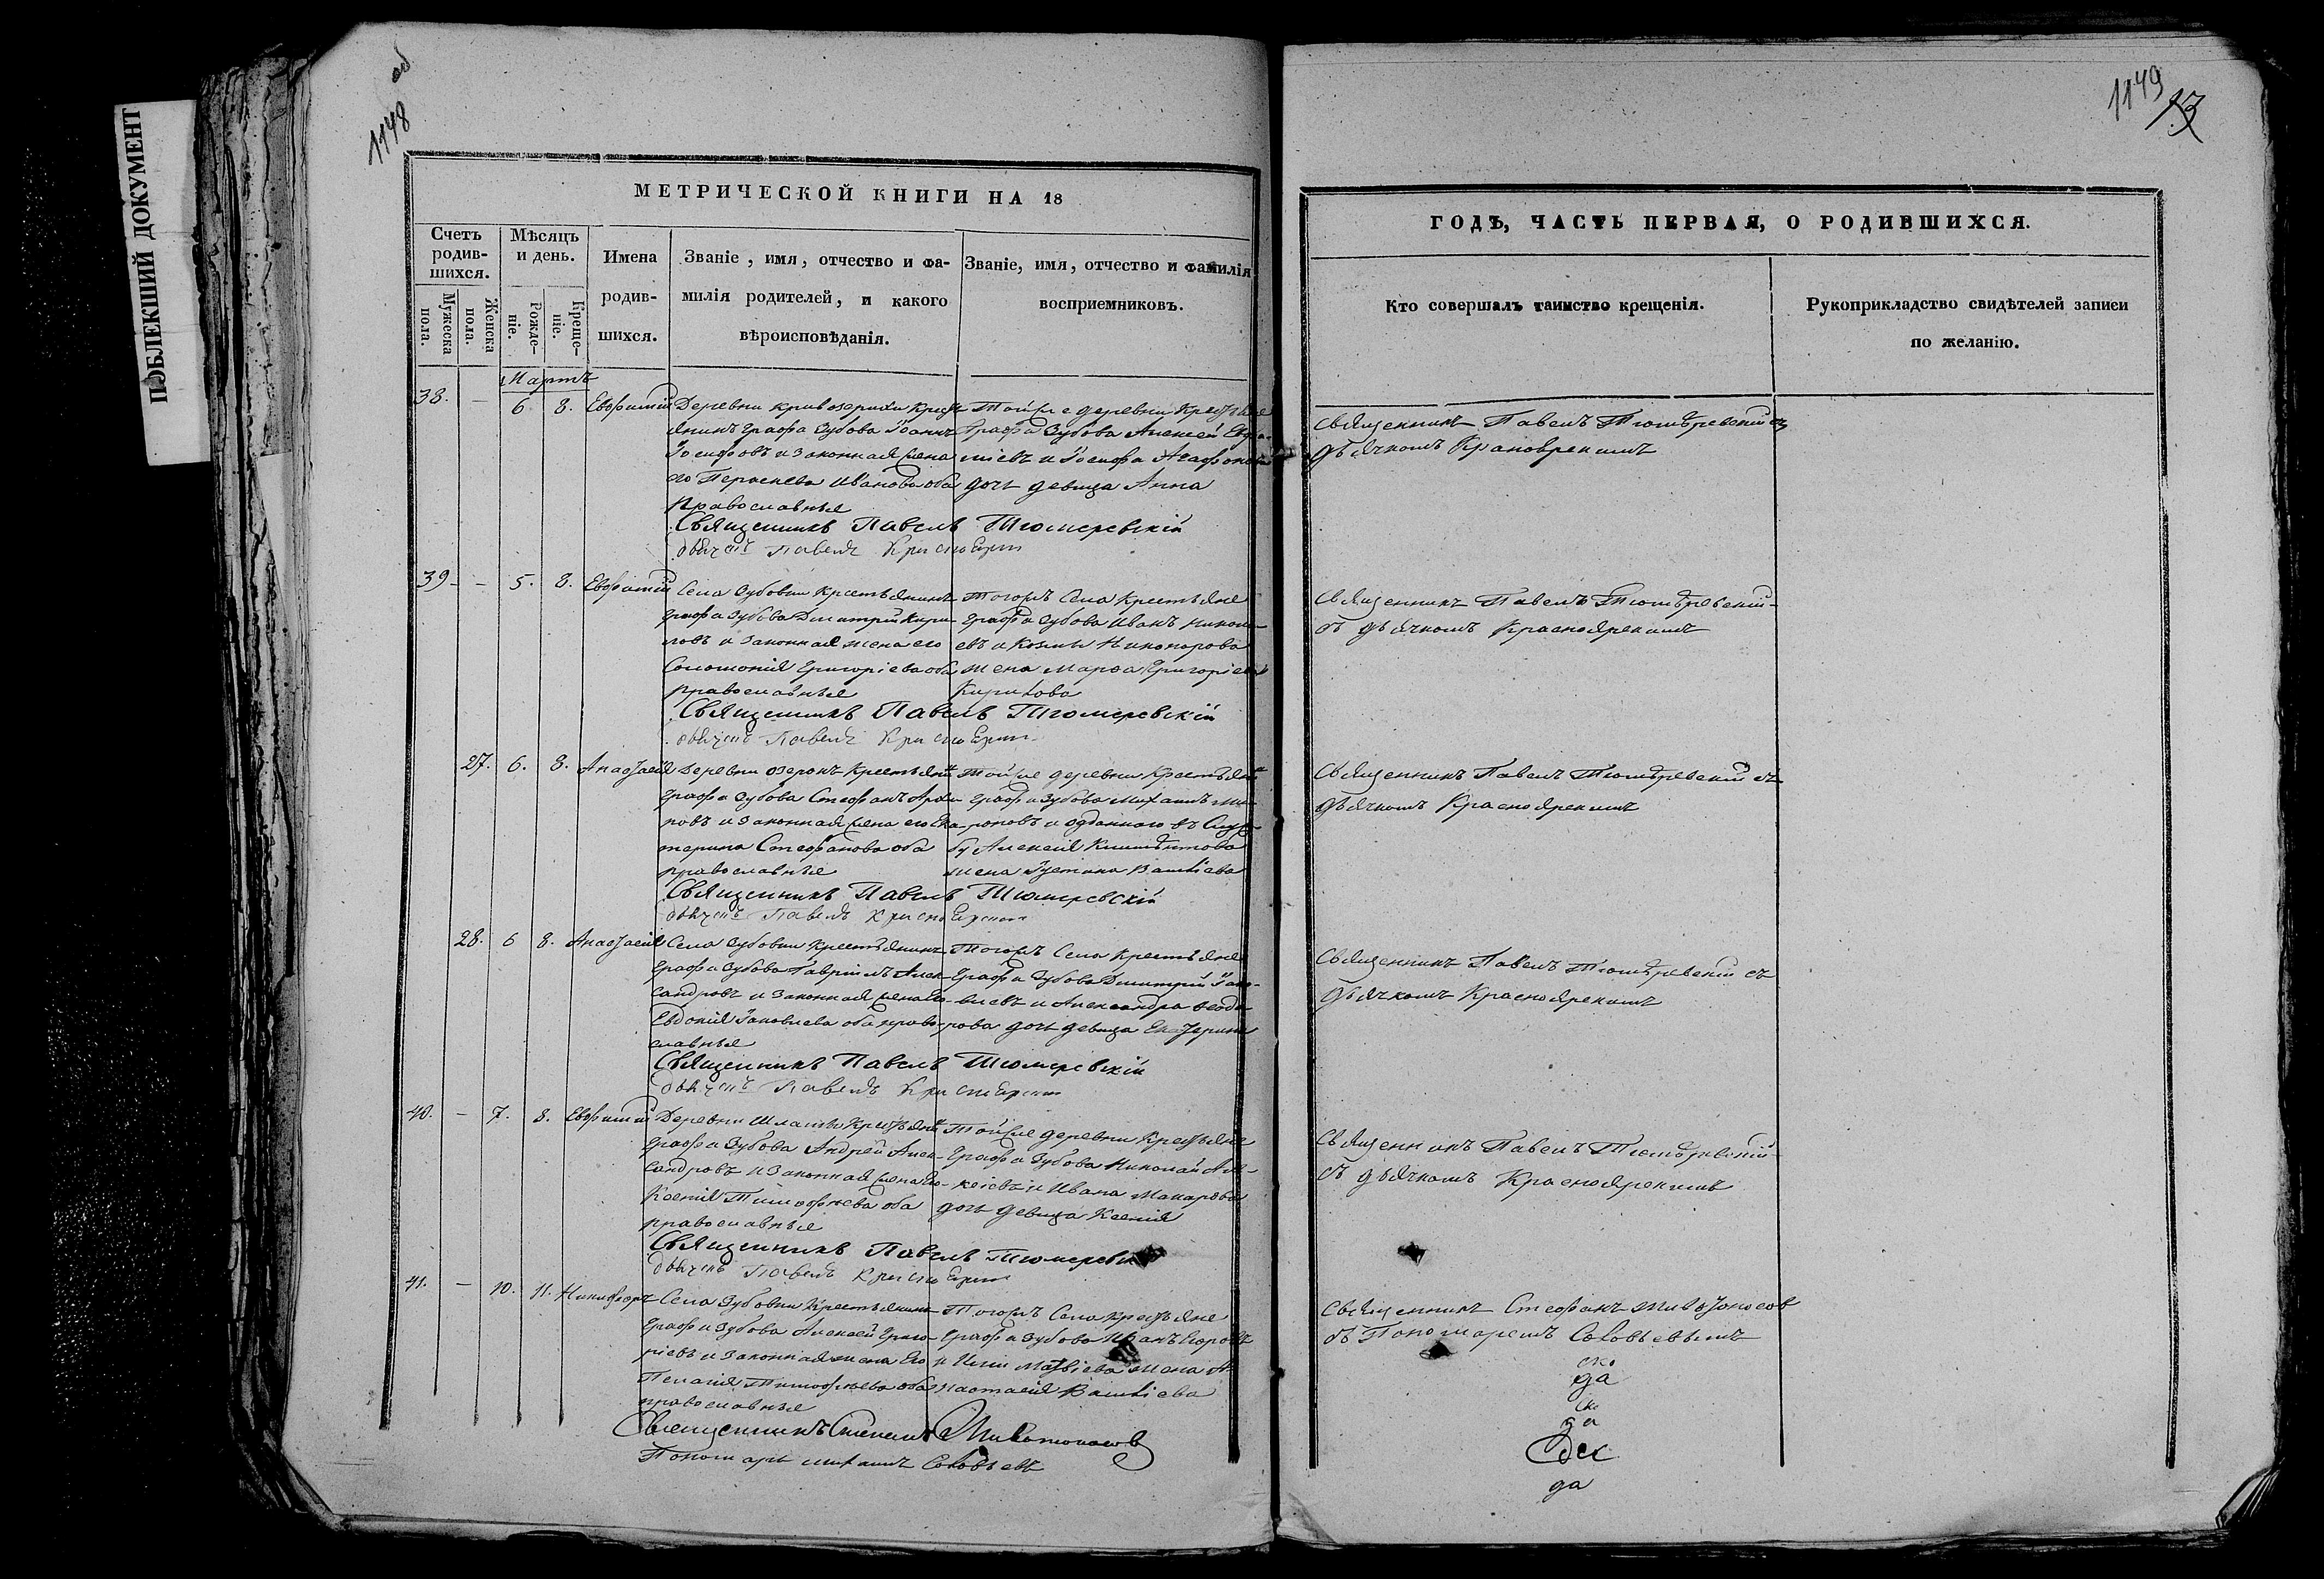 ПОБЛЕКШИЙ ДОКУМЕНТ
1148 об
МЕТРИЧЕСКОЙ КНИГИ НА 18
Счетъ родив-шихся.
Мужеска пола.
Женска пола.
Мѣсяцъ и день.
Рожде-ніе.
Креще-ніе.
Имена родив-шихся.
Званіе, имя, отчество и фа-милія родителей, и какого вѣроисповѣданія.
Званіе, имя, отчество и фамилія воспріемниковъ.
Мартъ
38. — 6. 8. Евфимій
Деревни Кривозерихи Крест-
янинъ Графа Зубова Іоаннъ
Іосифовъ и законная жена
его Параскева Иванова оба
православные
Тойже деревни Крестьяне
Графа Зубова Алексей
и Іосифа Агафонова
дочь девица Анна
Священникъ Павелъ Тюмеревскій
дьячекъ Павелъ
39 — 5. 8. Евфимій
Села Зубовки Крестьянинъ
Графа Зубова Димитрій Кири-
ловъ и законная жена его
Соломонія Григоріева оба
православные
Тогожъ Села Крестьяне
Графа Зубова Иванъ Никола-
евъ и Козмы Никонорова
жена Марфа Григоріева
Священникъ Павелъ Тюмеревскій
дьячекъ Павелъ
27. 6. 8. Анастасія
Деревни Озерокъ Крестьянинъ
Графа Зубова Стефанъ
и законная жена его Ека-
терина Стефанова оба
православные
Тойже деревни Крестьянинъ
Графа Зубова Михаилъ Ми-
роновъ и одданного въ Служ-
бу Алексія
жена Іустина Васильева
Священникъ Павелъ Тюмеревскій
дьячекъ Павелъ
28. 6 8. Анастасія
Села Зубовки Крестьянинъ
Графа Зубова Гавріилъ Алек-
сандровъ и законная жена его
Евдокія Іаковлева оба право-
славные
Тогожъ Села Крестьяне
Графа Зубова Димитрій Іако-
влевъ и Александра Феодо-
рова дочь девица Екатерина
Священникъ Павелъ Тюмеревскій
дьячекъ Павелъ
40. — 7. 8. Евфимій
Деревни Крестьянинъ
Графа Зубова Андрей Алек-
сандровъ и законная жена его
Ксенія Тимофеева оба
православные
Тойже деревни Крестьяне
Графа Зубова Николай Але-
ксіевъ и Ивана Макарова
дочь девица Ксенія
Священникъ Павелъ Тюмеревскій
дьячекъ Павелъ
41. — 10. 11. Никифоръ
Села Зубовки Крестьянинъ
Графа Зубова Алексей Григо-
ріевъ и законная жена Его
Пелагія Тимофеева оба
православные
Тогожъ Села Крестьяне
Графа Зубова Иванъ
и Ильи Матвіева жена А-
настасія Васильева
Священникъ Стефанъ Миловтоносовъ
Пономарь Михаилъ Соловьевъ
1149
13
ГОДЪ, ЧАСТЬ ПЕРВАЯ, О РОДИВШИХСЯ.
Кто совершалъ таинство крещенія.
Рукоприкладство свидѣтелей записи по желанію.
Священникъ Павелъ Тюмѣревскій съ
дьячкомъ Красноярскимъ
Священникъ Павелъ Тюмѣревскій
съ дьячкомъ Красноярскимъ
Священникъ Павелъ Тюмѣревскій съ
дьячкомъ Красноярскимъ
Священникъ Павелъ Тюмѣревскій съ
дьячкомъ Красноярскимъ
Священникъ Павелъ Тюмѣревскій
съ дьячкомъ Красноярскимъ
Священникъ Стефанъ
съ Пономаремъ Соловьевымъ
да
да
да